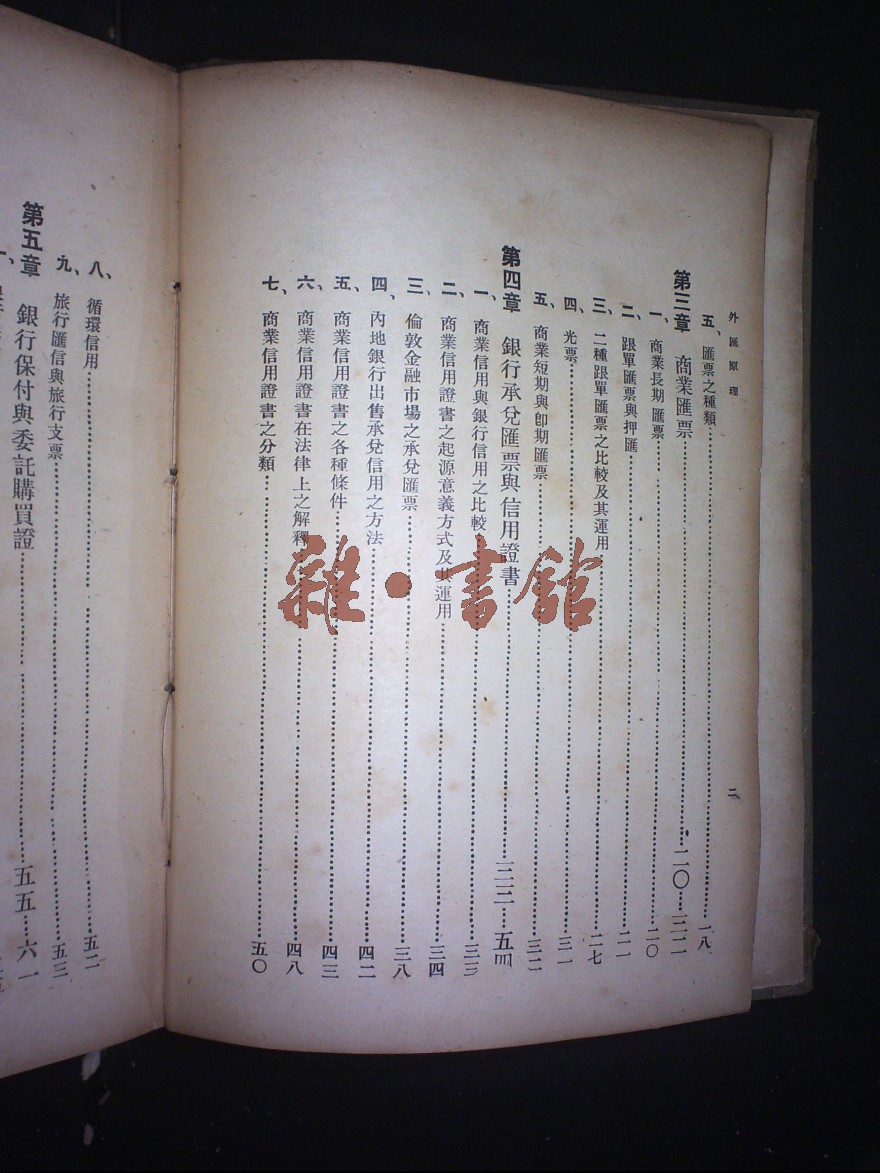 外匯原理
二
五、匯票之種類……一八
第三章 商業匯票……二〇…三二
一、商業長期匯票……二〇
二、跟單匯票與押匯……二一
三、二種跟單匯票之比較及其運用……二七
四、光票……三一
五、商業短期與卽期匯票……三二
第四章 銀行承兌匯票與信用證書……三三…五四
一、商業信用與銀行信用之比較……三三
二、商業信用證書之起源意義方式及其運用……三四
三、倫敦金融市場之承兌匯票……三八
四、內地銀行出售承兌信用之方法……四二
五、商業信用證書之各種條件……四三
六、商業信用證書在法律上之解釋……四八
七、商業信用證書之分類……五〇
八、循環信用……五二
九、旅行匯信與旅行支票……五三
第五章 銀行保付與委託購買證……五五…六一
雜·書館